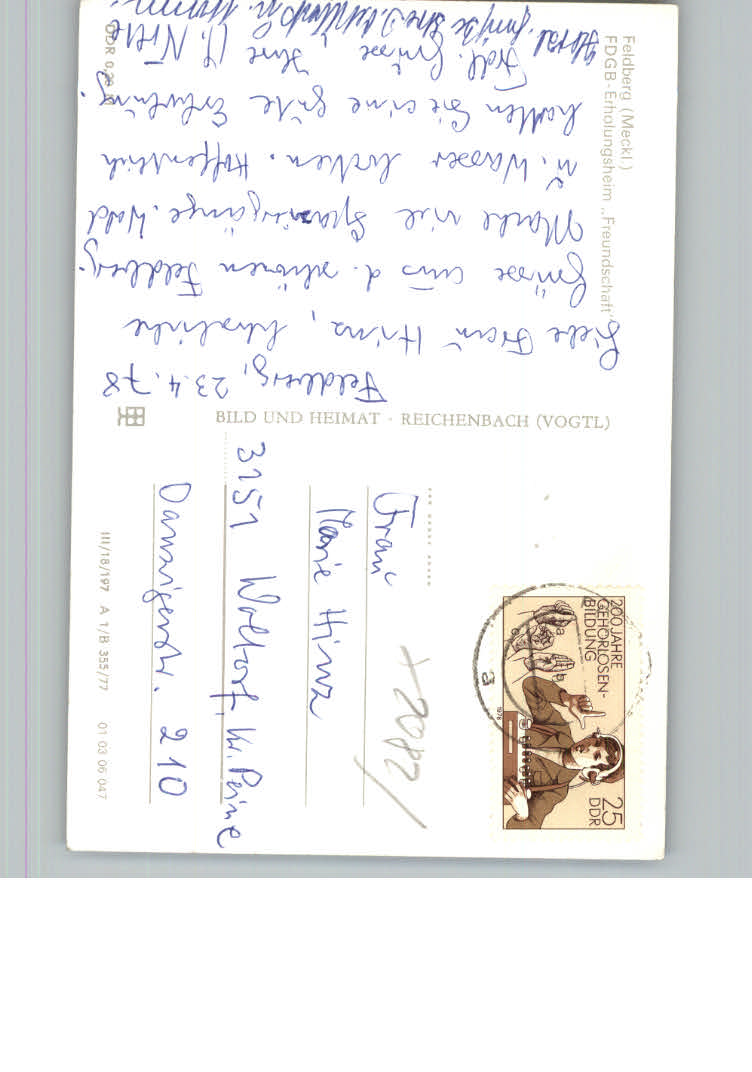 Feldberg (Meckl.)
FDGB-Erholungsheim „Freundschaft"
Feldberg, 23.4.78
Liebe Frau Hinz, herzliche
Grüsse aus d. schönen Feldberg.
Mache viel Spaziergänge. Wald
u. Wasser locken. Hoffentlich
hatten Sie eine gute Erholung.
Frdl. Grüsse Ihre U. Nitte
Herzl. Grüße Ihre
DDR 0,20 M
BILD UND HEIMAT · REICHENBACH (VOGTL)
200 JAHRE
GEHÖRLOSEN-
BILDUNG
a
1978
25
DDR
a
Frau
Marie Hinz
3151 Woltorf, Kr. Peine
Danzigerstr. 210
+2082/
III/18/197 A 1/B 355/77 01 03 06 047